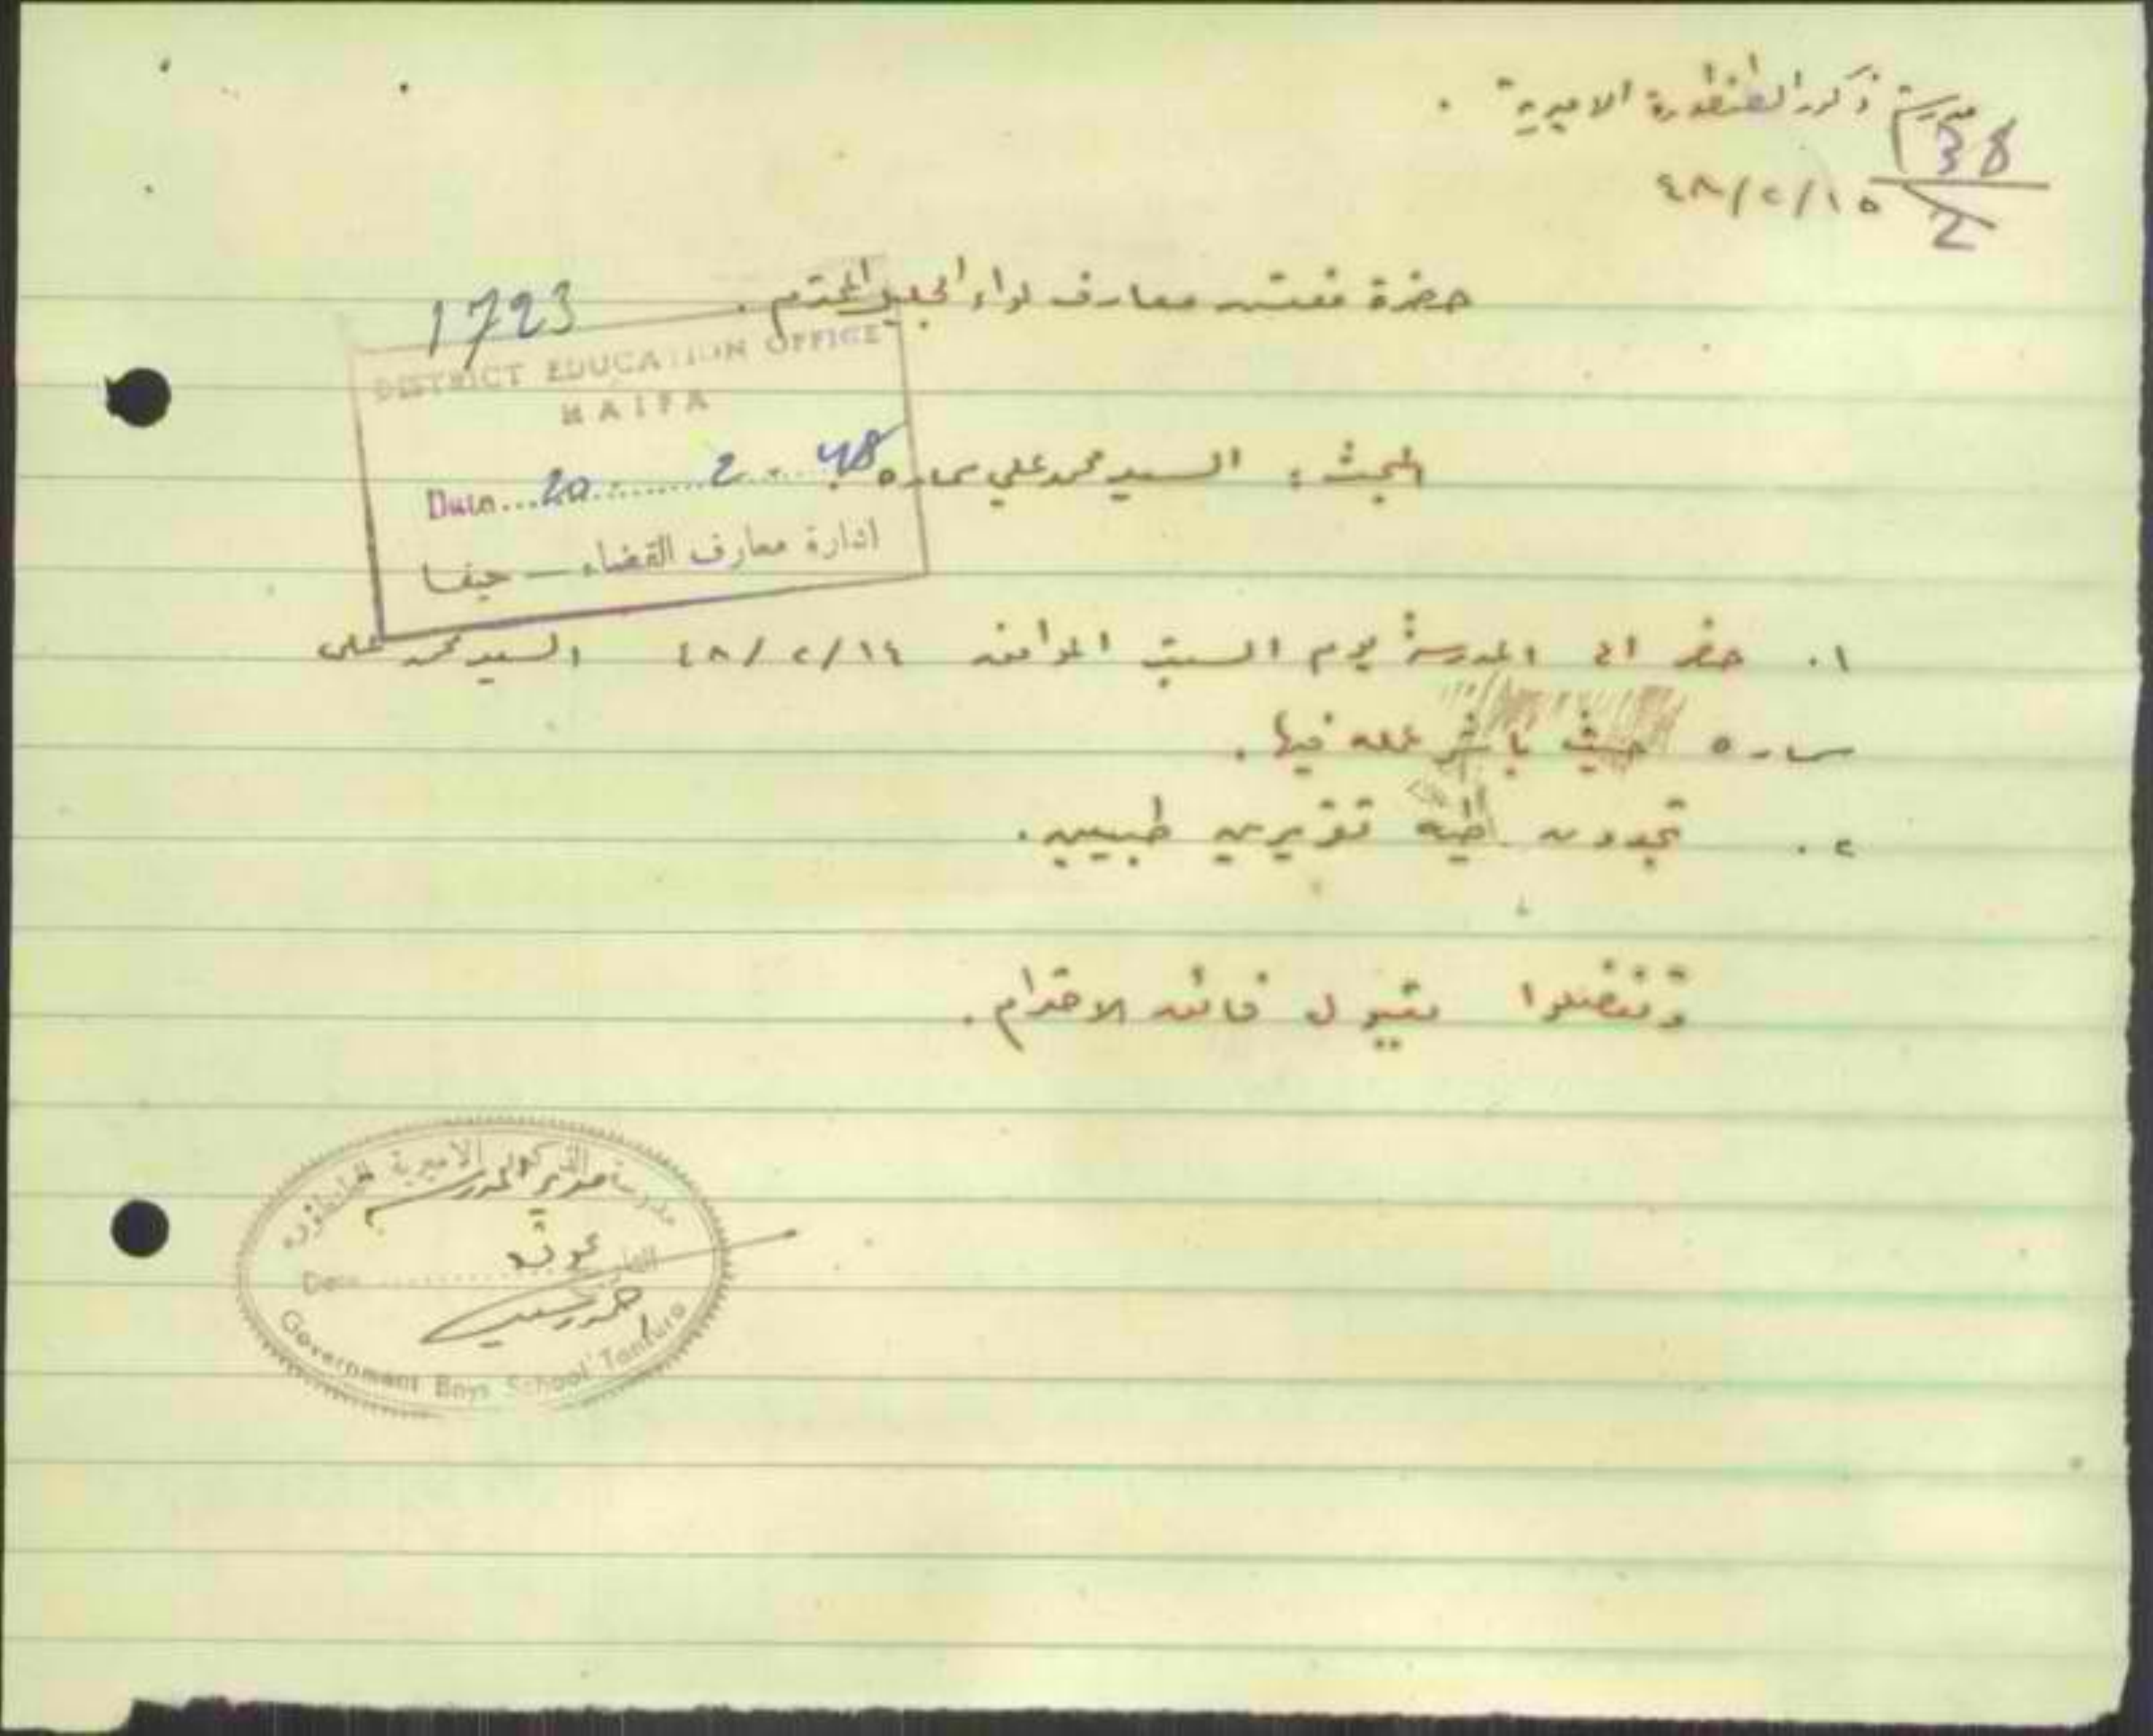 مدرسة ذكور الطنطورة الاميرية .
138
2
٤٨/٢/١٥
حضرة مفتش معارف لواء الجليل المحترم .
1723
DISTRICT EDUCATION OFFICE
HAIFA
Date... 20 ... 2 ... 48
ادارة معارف القضاء — حيفا
المبحث : السيد محمد علي سماره .
١. حضر الى المدرسة يوم السبت الموافق ٤٨/٢/١٤ السيد محمد علي
سماره حيث باشر عمله فيها .
٢. تجدون طيه تقريرين طبيين .
وتفضلوا بقبول فائق الاحترام .
مدرسة الذكور الاميرية الطنطوره
مدير المدرسة
Date
Government Boys School Tantura